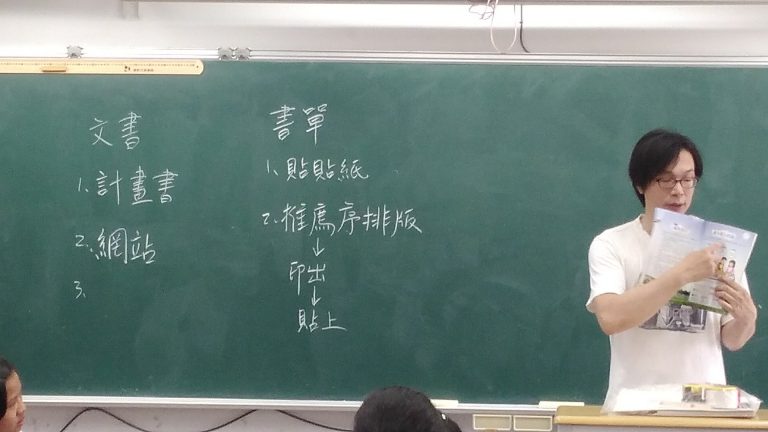 文書
1. 計畫書
2. 網站
3.
書單
1. 貼貼紙
2. 推薦序排版
↓
印出
↓
貼上